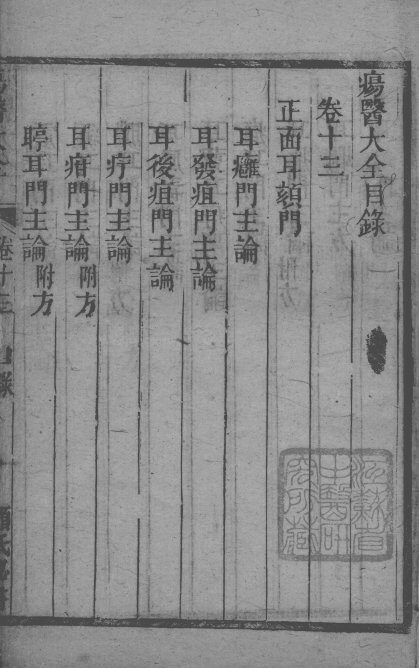 瘍醫大全目錄
卷十三
正面耳頦門
耳癰門主論
耳發疽門主論
耳後疽門主論
耳疔門主論
耳疳門主論附方
聤耳門主論附方
卷十三